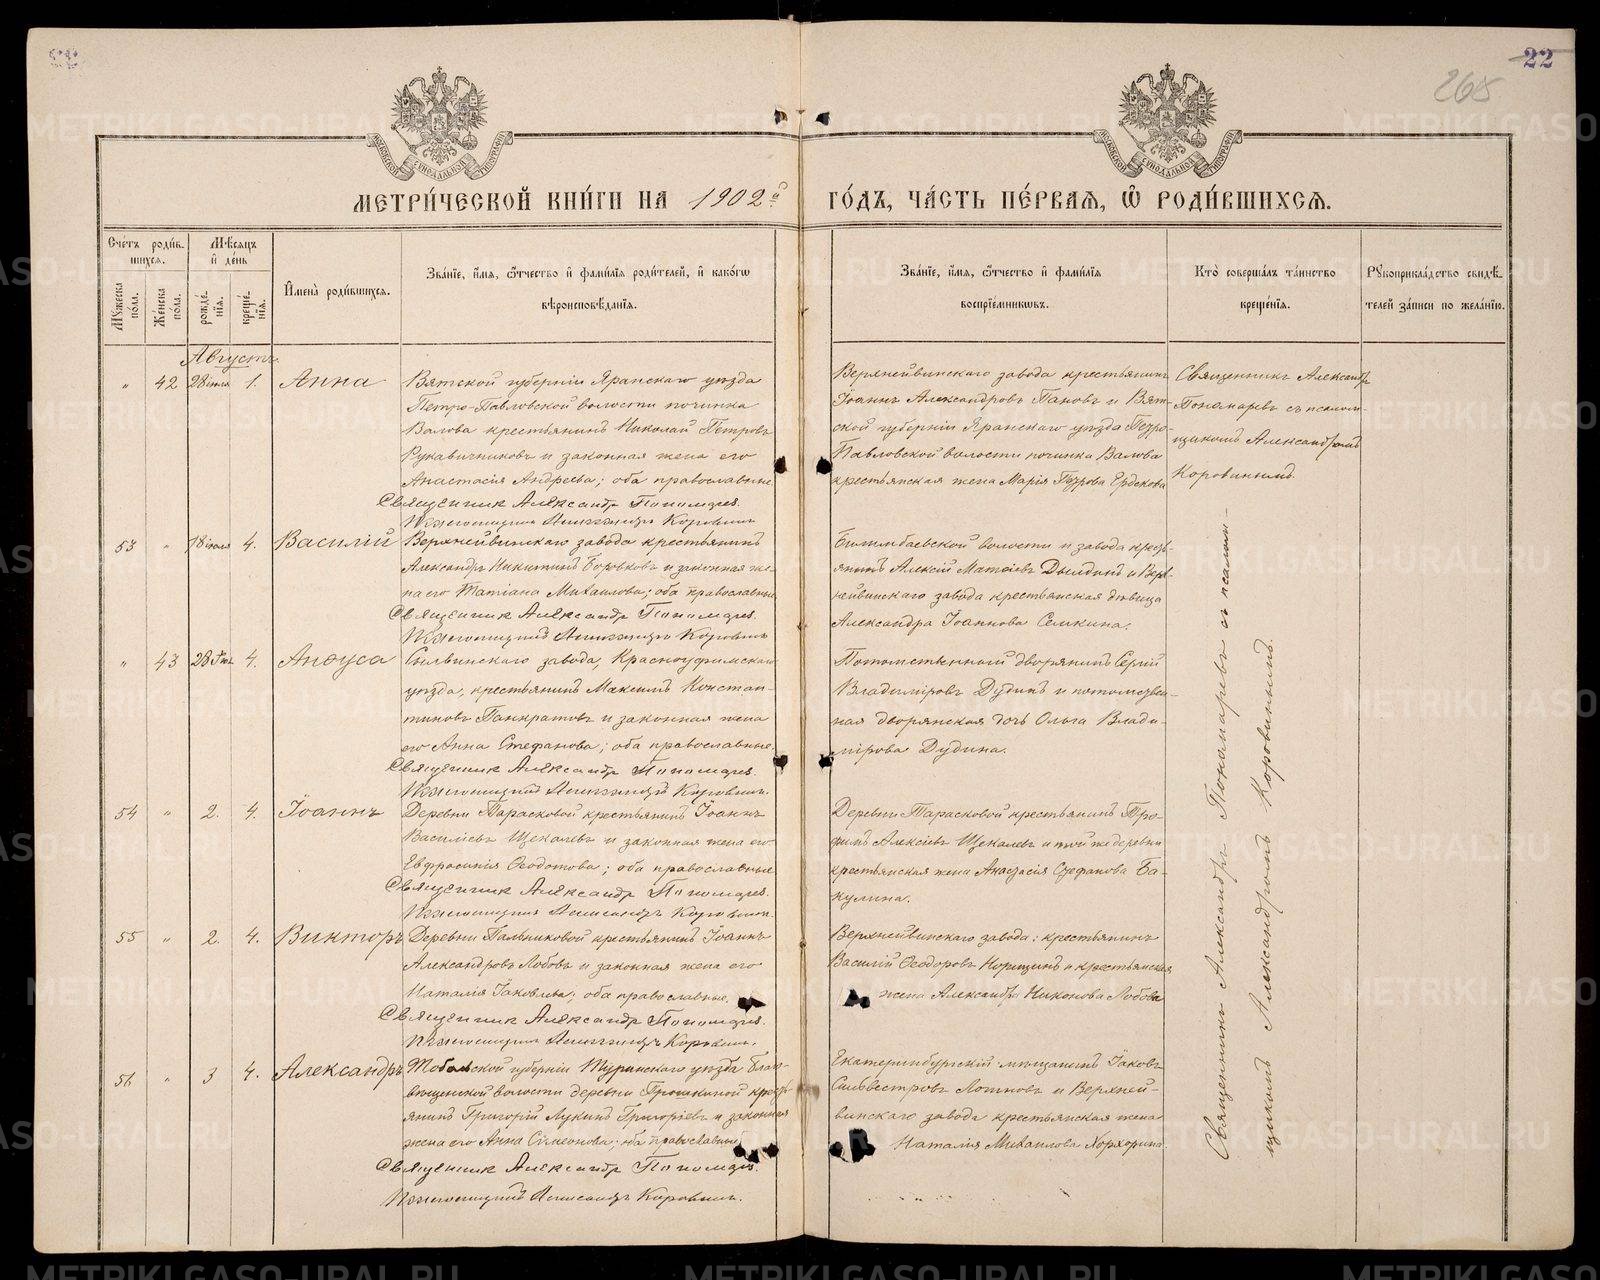 22
265
МЕТРИ́ЧЕСКОЙ КНИ́ГИ НА 1902й ГО́ДЪ, ЧА́СТЬ ПЕ́РВАЯ, Ѡ РОДИ́ВШИХСЯ.
Сче́тъ роди́вшихся.
Му́жеска по́ла.
Же́нска по́ла.
Мѣ́сяцъ и де́нь
рожде́нїя.
креще́нїя.
И҆мена̀ роди́вшихся.
Зва́нїе, и҆́мя, ѻ҆́тчество и҆ фами́лїя роди́телей, и҆ како́гѡ
вѣроисповѣ́данїя.
Зва́нїе, и҆́мя, ѻ҆́тчество и҆ фами́лїя
воспрїе́мниковъ.
Кто̀ соверша́лъ та́инство
креще́нїя.
Рꙋкоприкла́дство свидѣ́телей за́писи по жела́нїю.
Августъ.
" 42 28 іюля 1. Анна
Вятской губерніи Яранскаго уѣзда
Петро-Павловской волости починка
Валова крестьянинъ Николай Петровъ
Рукавичниковъ и законная жена его
Анастасія Андреева; оба православные.
Священник Александр Пономарев.
Псаломщикъ Александръ Коровинъ
Верхнейвинскаго завода крестьянинъ
Іоаннъ Александровъ Пановъ и Вят-
ской губерніи Яранскаго уѣзда Петро-
Павловской волости починка Валова
крестьянская жена Марія Петрова Ердякова
Священникъ Александръ
Пономаревъ съ псалом-
щикомъ Александромъ
Коровинымъ.
53 " 18 іюля 4. Василій
Верхнейвинскаго завода крестьянинъ
Александръ Никитинъ Боровковъ и законная же-
на его Татіана Михаилова; оба православные
Священник Александр Пономарев.
Псаломщикъ Александръ Коровинъ
Билимбаевской волости и завода кресть-
янинъ Алексій Матѳіевъ Дылдинъ и Верх-
нейвинскаго завода крестьянская дѣвица
Александра Іоаннова Семкина.
" 43 28 Іюл. 4. Анѳуса
Сылвинскаго завода, Красноуфимскаго
уѣзда, крестьянинъ Максимъ Констан-
тиновъ Панкратовъ и законная жена
его Анна Стефанова; оба православные.
Священник Александр Пономарев.
Псаломщикъ Александръ Коровинъ.
Потомственный дворянинъ Сергій
Владиміровъ Дудинъ и потомствен-
ная дворянская дочь Ольга Влади-
мірова Дудина.
54 " 2. 4. Іоаннъ
Деревни Тарасковой крестьянинъ Іоаннъ
Василіевъ Щекалевъ и законная жена его
Евфросинія Ѳеодотова; оба православные
Священник Александр Пономарев.
Псаломщикъ Александръ Коровинъ.
Деревни Тарасковой крестьянинъ Тро-
фимъ Алексіевъ Щекалевъ и той же деревни
крестьянская жена Анастасія Стефанова Ба-
кулина.
55 " 2. 4. Викторъ
Деревни Пальниковой крестьянинъ Іоаннъ
Александровъ Лобовъ и законная жена его
Наталія Іаковлева; оба православные.
Священник Александр Пономарев.
Псаломщикъ Александръ Коровинъ.
Верхнейвинскаго завода: крестьянинъ
Василій Ѳеодоровъ Норицинъ и крестьянская
жена Александра Никонова Лобова
56 " 3 4. Александръ
Тобольской губерніи Туринскаго уѣзда Благо-
вѣщенской волости деревни Прошкиной кресть-
янинъ Григорій Лукинъ Григоріевъ и законная
жена его Анна Симеонова; оба православные
Священник Александр Пономарев.
Псаломщикъ Александръ Коровинъ.
Екатеринбургскій мѣщанинъ Іаковъ
Сильвестровъ Логиновъ и Верхней-
винскаго завода крестьянская жена
Наталія Михаилова Хорхорина.
Священникъ Александръ Пономаревъ съ псалом-
щикомъ Александромъ Коровинымъ.